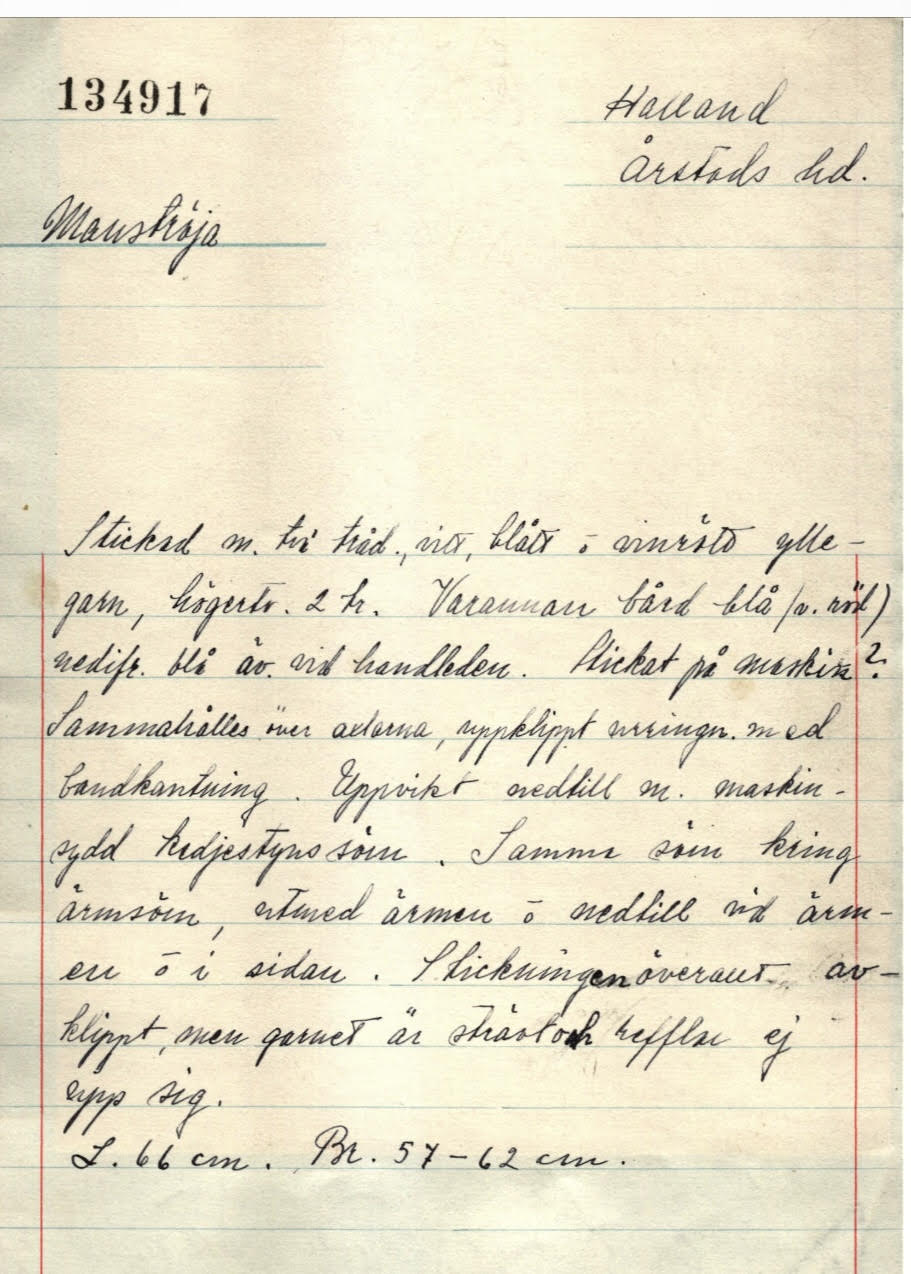 134917
Halland
Årstads hd.
Manströja
Stickad m. två tråd., vitt, blått o vinrött ylle-
garn, högertv. 2 tr. Varannan bård blå (v. röd)
nedifr. blå äv. vid handleden. Stickat på maskin?
Sammanhålles över axlarna, uppklippt urringn. med
bandkantning. Uppvikt nedtill m. maskin-
sydd kedjestyns söm. Samma söm kring
ärmsöm, utmed ärmen o nedtill vid ärm-
en o i sidan. Stickningen överallt av-
klippt, men garnet är strävt och refflar ej
upp sig.
L. 66 cm. Br. 57-62 cm.